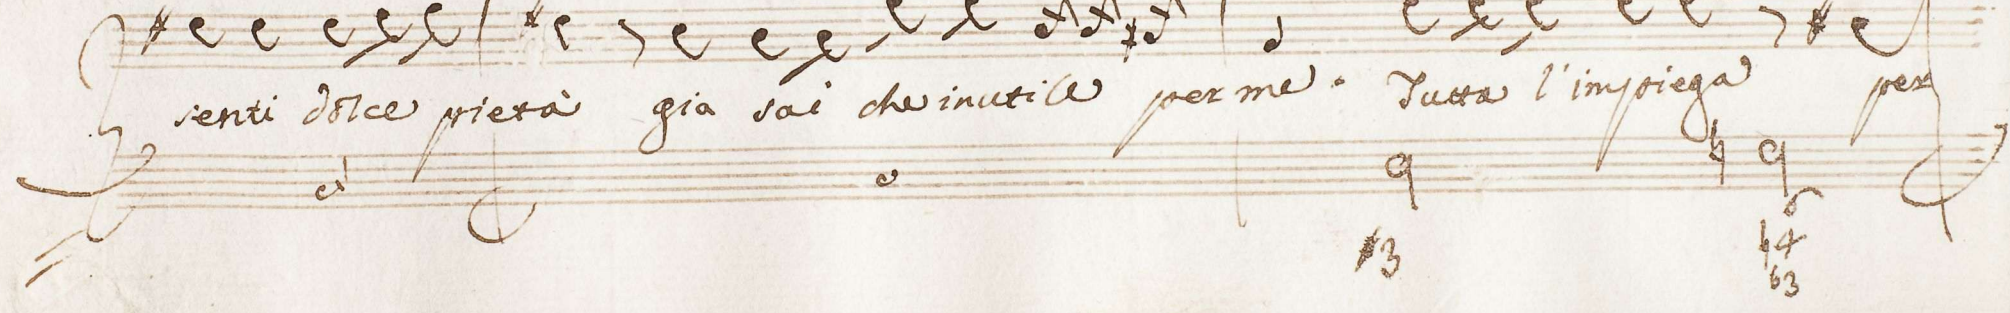 senti dolce pietà già sai che inutile per me. Tutta l'impiega per
#3 6
♮4
♭3